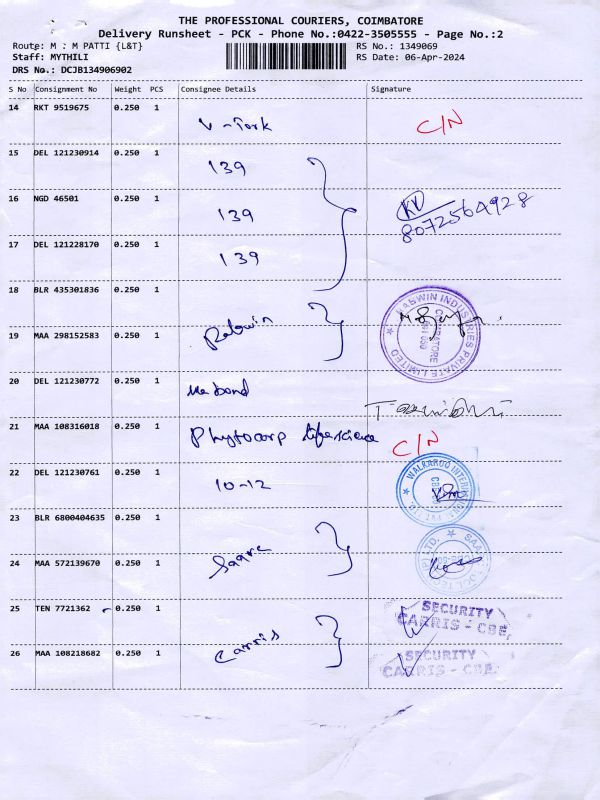 THE PROFESSIONAL COURIERS, COIMBATORE
Delivery Runsheet - PCK - Phone No.:0422-3505555 - Page No.:2
Route: M : M PATTI {L&T} RS No.: 1349069
Staff: MYTHILI RS Date: 06-Apr-2024
DRS No.: DCJB134906902
S No Consignment No Weight PCS Consignee Details Signature
14 RKT 9519675 0.250 1
V-Tork C/N
15 DEL 121230914 0.250 1
139
16 NGD 46501 0.250 1
139 KV
8072564928
17 DEL 121228170 0.250 1
139
18 BLR 435301836 0.250 1
19 MAA 298152583 0.250 1
INDUSTRIES PRIVATE LIMITED
COIMBATORE
20 DEL 121230772 0.250 1
21 MAA 108316018 0.250 1
Phytocorp lifescience C/N
22 DEL 121230761 0.250 1
10-12
23 BLR 6800404635 0.250 1
24 MAA 572139670 0.250 1
Saare
25 TEN 7721362 0.250 1
SECURITY
CARRIS - CBE.
26 MAA 108218682 0.250 1
Carris
SECURITY
CARRIS - CBE.